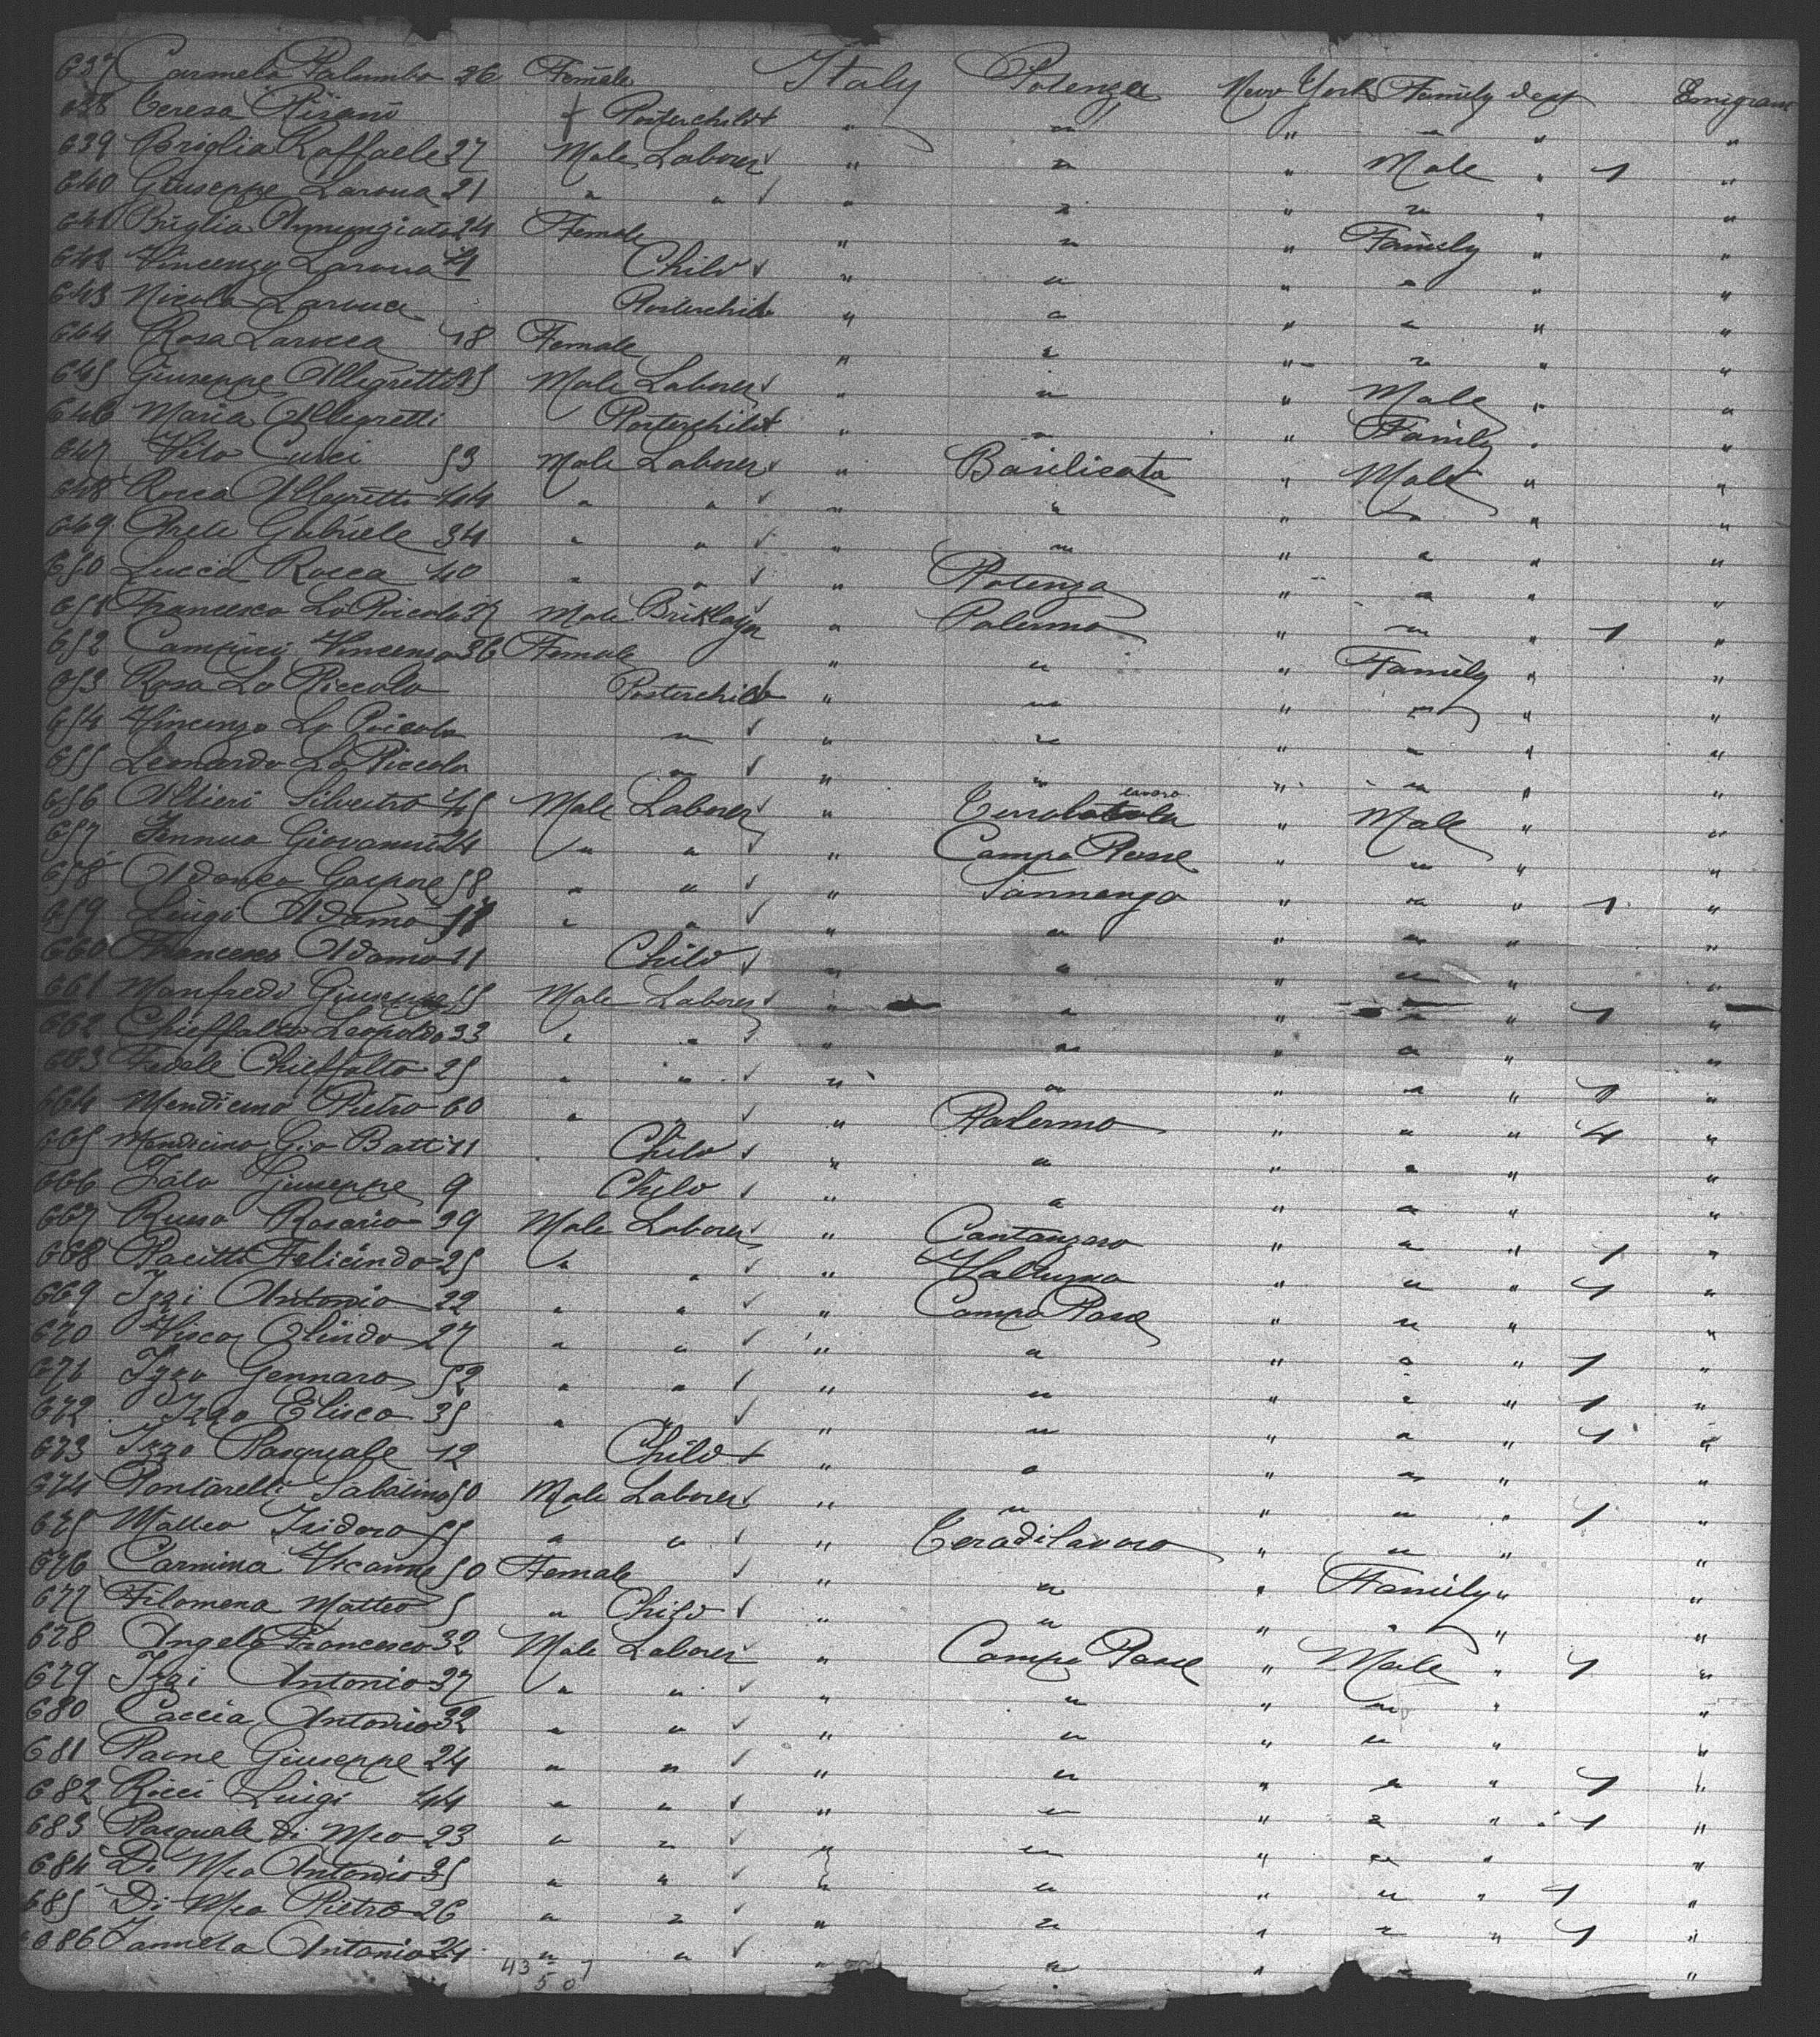 637 Carmela Palumbo 26 Female Italy Potenza New York Family dept Emigrant
638 Teresa Pisani " " " " "
639 Briglia Raffaele 27 Male Laborer " " " Male " 1 "
640 Giuseppe Larocca 21 " " " " " " " "
641 Briglia Annunziata 24 Female " " " Family " "
642 Vincenzo Larocca Child " " " " " "
643 Nicola Larocca " " " " " "
644 Rosa Larocca 18 Female " " " " "
645 Giuseppe Allegretti Male Laborer " " " Male " "
646 Maria Allegretti " " " Family " "
647 Vito Curci 53 Male Laborer " Basilicata " Male " "
648 Rocca Allegretti 44 " " " " " " " "
649 Gabriele 34 " " " " " " " "
650 Lucia Rocca 40 " " " Potenza " " " "
651 Francesco Lo Piccolo 37 Male Briklayer " Palermo " " " 1 "
652 Vincenza 36 Female " " " Family " "
653 Rosa Lo Piccolo " " " " " "
654 Vincenzo Lo Piccolo " " " " " " "
655 Leonardo Lo Piccolo " " " " " " "
656 Altieri Silvestro 45 Male Laborer " lavoro " Male " "
657 Giovanni 24 " " " Campo " " " "
658 Gaspare 58 " " " " " " 1 "
659 Luigi Adamo " " " " " " " "
660 Francesco Adamo 11 Child " " " " " "
661 Manfredi Giuseppe 55 Male Laborer " " " " " 1 "
662 Chieffallo Leopoldo 33 " " " " " " " "
663 Fedele Chieffallo 25 " " " " " " " 1 "
664 Mendicino Pietro 60 " " " Palermo " " " 4 "
665 Mendicino Gio Batt 11 Child " " " " " "
666 Giuseppe 9 Child " " " " " "
667 Russo Rosario 39 Male Laborer " Cantanzaro " " " 1 "
668 Pacitti Felicindo 25 " " " " " " 1 "
669 Izzi Antonio 22 " " " Campo " " " "
670 Olindo 27 " " " " " " " 1 "
671 Izzo Gennaro 52 " " " " " " " 1 "
672 Izzo Eliseo 35 " " " " " " " 1 "
673 Izzo Pasquale 12 Child " " " " " "
674 Pontarelli Sabatino 50 Male Laborer " " " " " 1 "
675 Matteo Isidoro 55 " " " Teradilavoro " " " "
676 Carmina 50 Female " " " Family " "
677 Filomena Matteo 5 " Child " " " " " "
678 Angelo Francesco 32 Male Laborer " Campo " Male " 1 "
679 Izzi Antonio 37 " " " " " " " "
680 Caccia Antonio 32 " " " " " " " "
681 Paone Giuseppe 24 " " " " " " " 1 "
682 Ricci Luigi 44 " " " " " " " 1 "
683 Pasquale Di Meo 23 " " " " " " " "
684 Di Meo Antonio 35 " " " " " " " 1 "
685 Di Meo Pietro 26 " " " " " " " 1 "
686 Antonio 24 " " " " " "
43 7
5 0